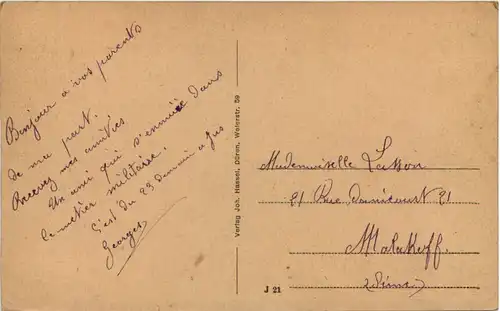 Bonjour à vos parents
de ma part.
Recevez mes amitiés
Un ami qui s'ennuie dans
le métier militaire.
C'est du 23 demain a jus
Georges
Verlag Joh. Hassel, Düren, Weierstr. 59
J 21
Mademoiselle
21 Rue 21
Malakoff
(Seine)